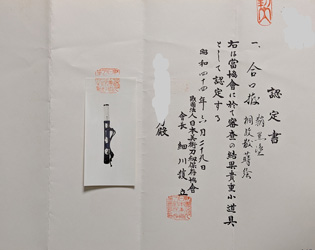 認定書
一、合口拵
桐紋散蒔絵
右は當協會に於て審査の結果貴重小道具
として認定する
昭和四十四年六月二十九日
財團法人日本美術刀剣保存協會
會長 細川護立
殿